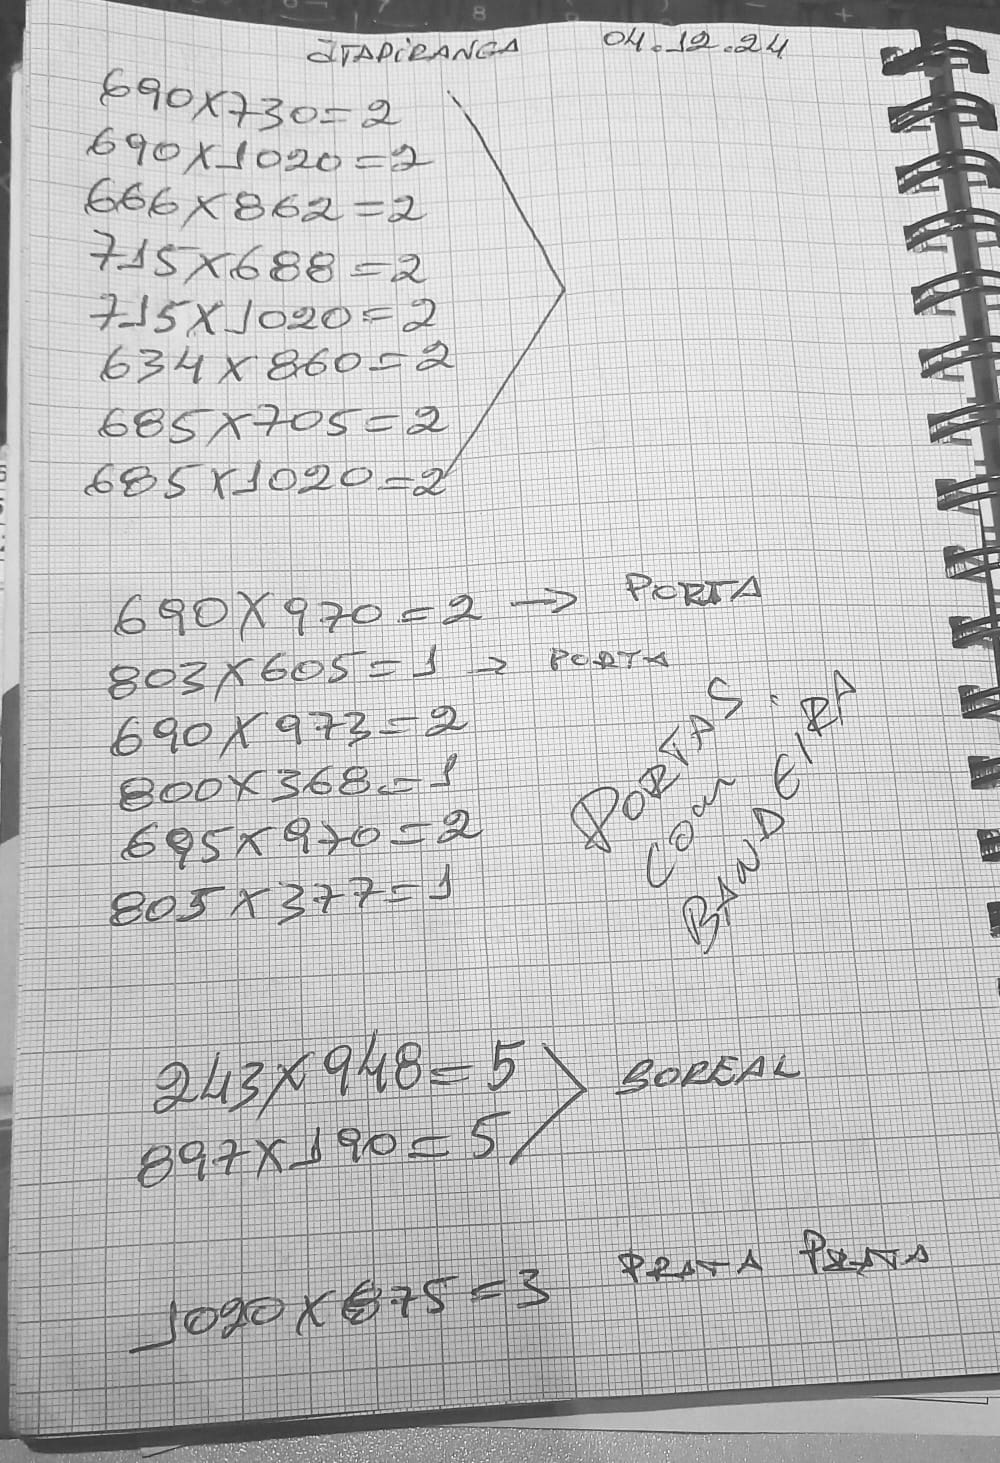 ITAPIRANGA 04.12.24
690x730=2
690x1020=2
666x862=2
715x688=2
715x1020=2
634x860=2
685x705=2
685x1020=2
690x970=2 -> PORTA
803x605=1 -> PORTA
690x973=2
800x368=1
695x970=2
805x377=1
PORTAS
COM
BANDEIRA
243x948=5
897x190=5
BOREAL
1020x675=3 PRATA PRATA